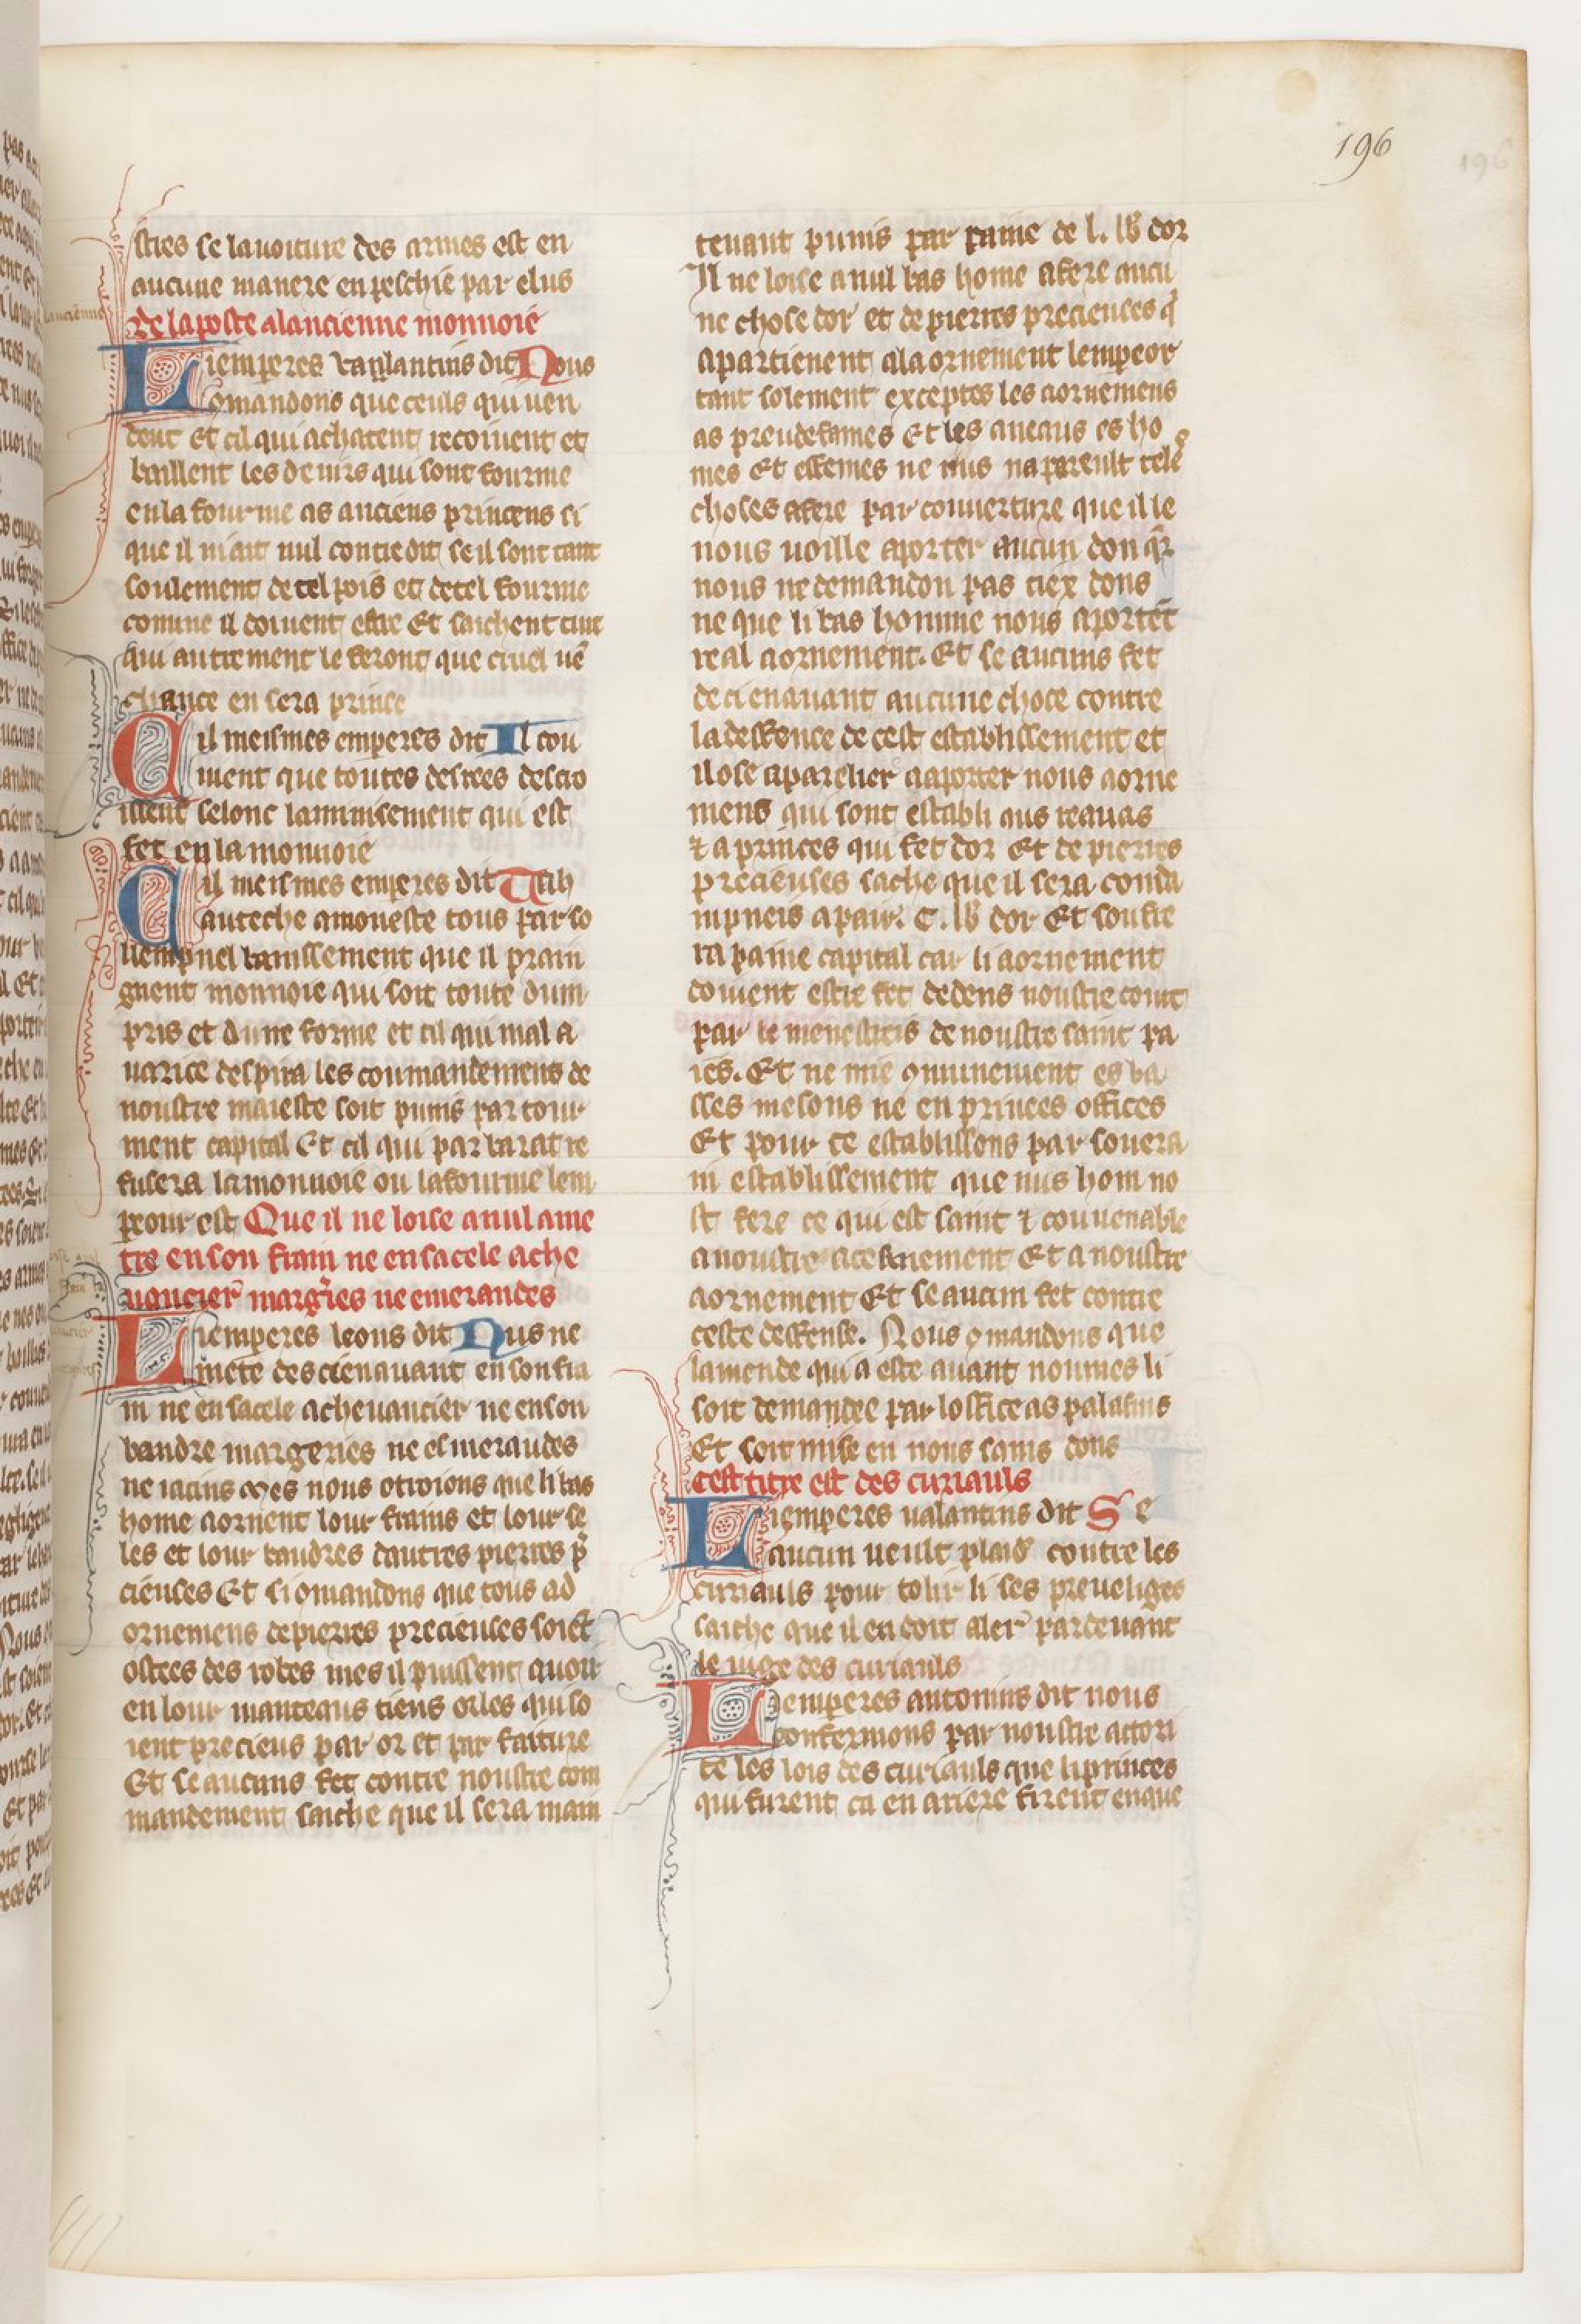 196
stres se la uoiture des armes est en
aucune manere enpeschie par elus
De la poste a lancienne monnoie
Li emperes vaulantins dit Nous
comandons que ceuls qui uen
dent Et cil qui achatent recoiuent et
baillent les deniers qui sont fourme
en la fourme as anciens princens si
que il niait nul contredit se il sont tant
soulement de tel pois et de tel fourme
comme il doiuent estre Et saichent tuit
qui autrement le feront que cruel uē
chance en sera prince
Cil meismes emperes dit Il cou
uient que toutes desrees descro
issent selonc lamuisement qui est
fet en la monnoie
Cil meismes emperes dit
auteche amoneste tous par so
llempnel banissement que il prain
gnent monnoie qui soit toute dum
pris et dune forme et cil qui mal a
uarice despira les coumandemens de
noustre maieste soit punis par tour
ment capital Et cil qui par barat re
fusera la monnoie ou la fourme lem
peour est Que il ne loise a nul ame
tre en son frain ne en sa cele ache
uaucier marg'ies ne emeraudes
Li emperes leons dit Nus ne
mete desciēnauant en son fra
in ne en sa cele acheuaucier ne en son
baudre margeries ne esmeraudes
ne iacins Mes nous otroions que li bas
home aornent lour frains et lour se
les et lour baudres dautres pierres p̄
cieuses Et si omandons que tous ad
ornemens de pierres precieuses soiēt
ostees des robes mes il puissent auoir
en lour manteaus tiens orles qui so
ient precieus par or et par faiture
Et se aucuns fet contre noustre com
mandement saiche que il sera main
tenant punis par paine de l. lb̄ dor
Il ne loise a nul bas home afere aucu
ne chose dor et de pierres preciences q̄
apartienent a la ornement lempeor
tant solement exceptes les aornemens
as preudefames Et les aneaus es ho
mes Et esfemes ne nus napareult teles
choses afere par couuerture que il le
nous uoille aporter aucun don q̄r
nous ne demandon pas tiex dons
ne que li bas homme nous aportēt
real aornement. Et se aucuns fet
deci enauant aucune chose contre
la deffence de cest establissement et
il ose aparelier aaporter nous aorne
mens qui sont establi aus reauas
⁊ a princes qui fet dor Et de pierres
precieuses sache que il sera conda
mpneis a paie. C. lb̄ dor Et soufre
ra paine capital car li aornement
doiuent estre fet dedens noustre court
par le menestreis de noustre saint pa
ies. Et ne mie ꝯmunement es ba
sses mesons ne en priuees offices
Et pour ce establissons par souera
in establissement que nus hom no
st fere ce qui est saint ⁊ couuenable
a noustre acesmement Et a noustre
aornement Et se aucun fet contre
ceste deffense. Nous ꝯmandons que
lamende qui a este auant nommes li
soit demandee par loffice as palatins
Et soit mise en nous sains dons
cest titre est des curiauls
Li emperes ualantins dit Se
aucun ueult plaid' contre les
curiauls pour tolir li ses preueliges
saiche que il en doit aler pardeuant
le iuge des curiauls
Li emperes antonins dit nous
confermons par noustre actori
te les lois des curiauls que li princes
qui furent ca en ariere firent enque